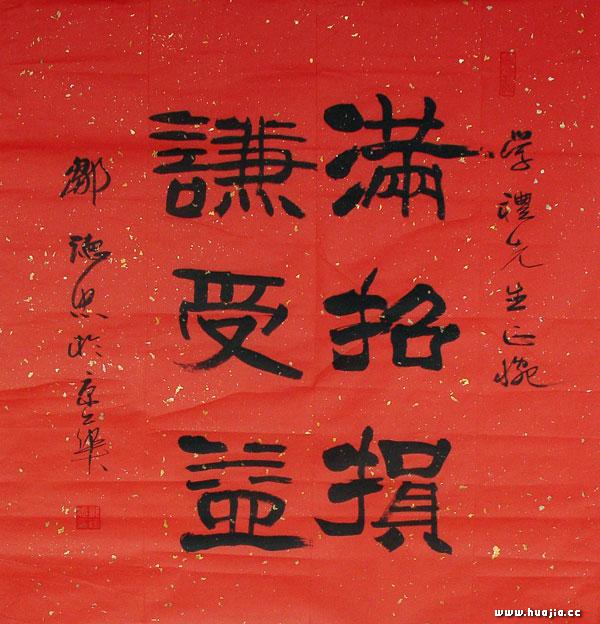 学禮先生正腕
滿招損
謙受益
鄒德忠於京華
www.huajia.cc